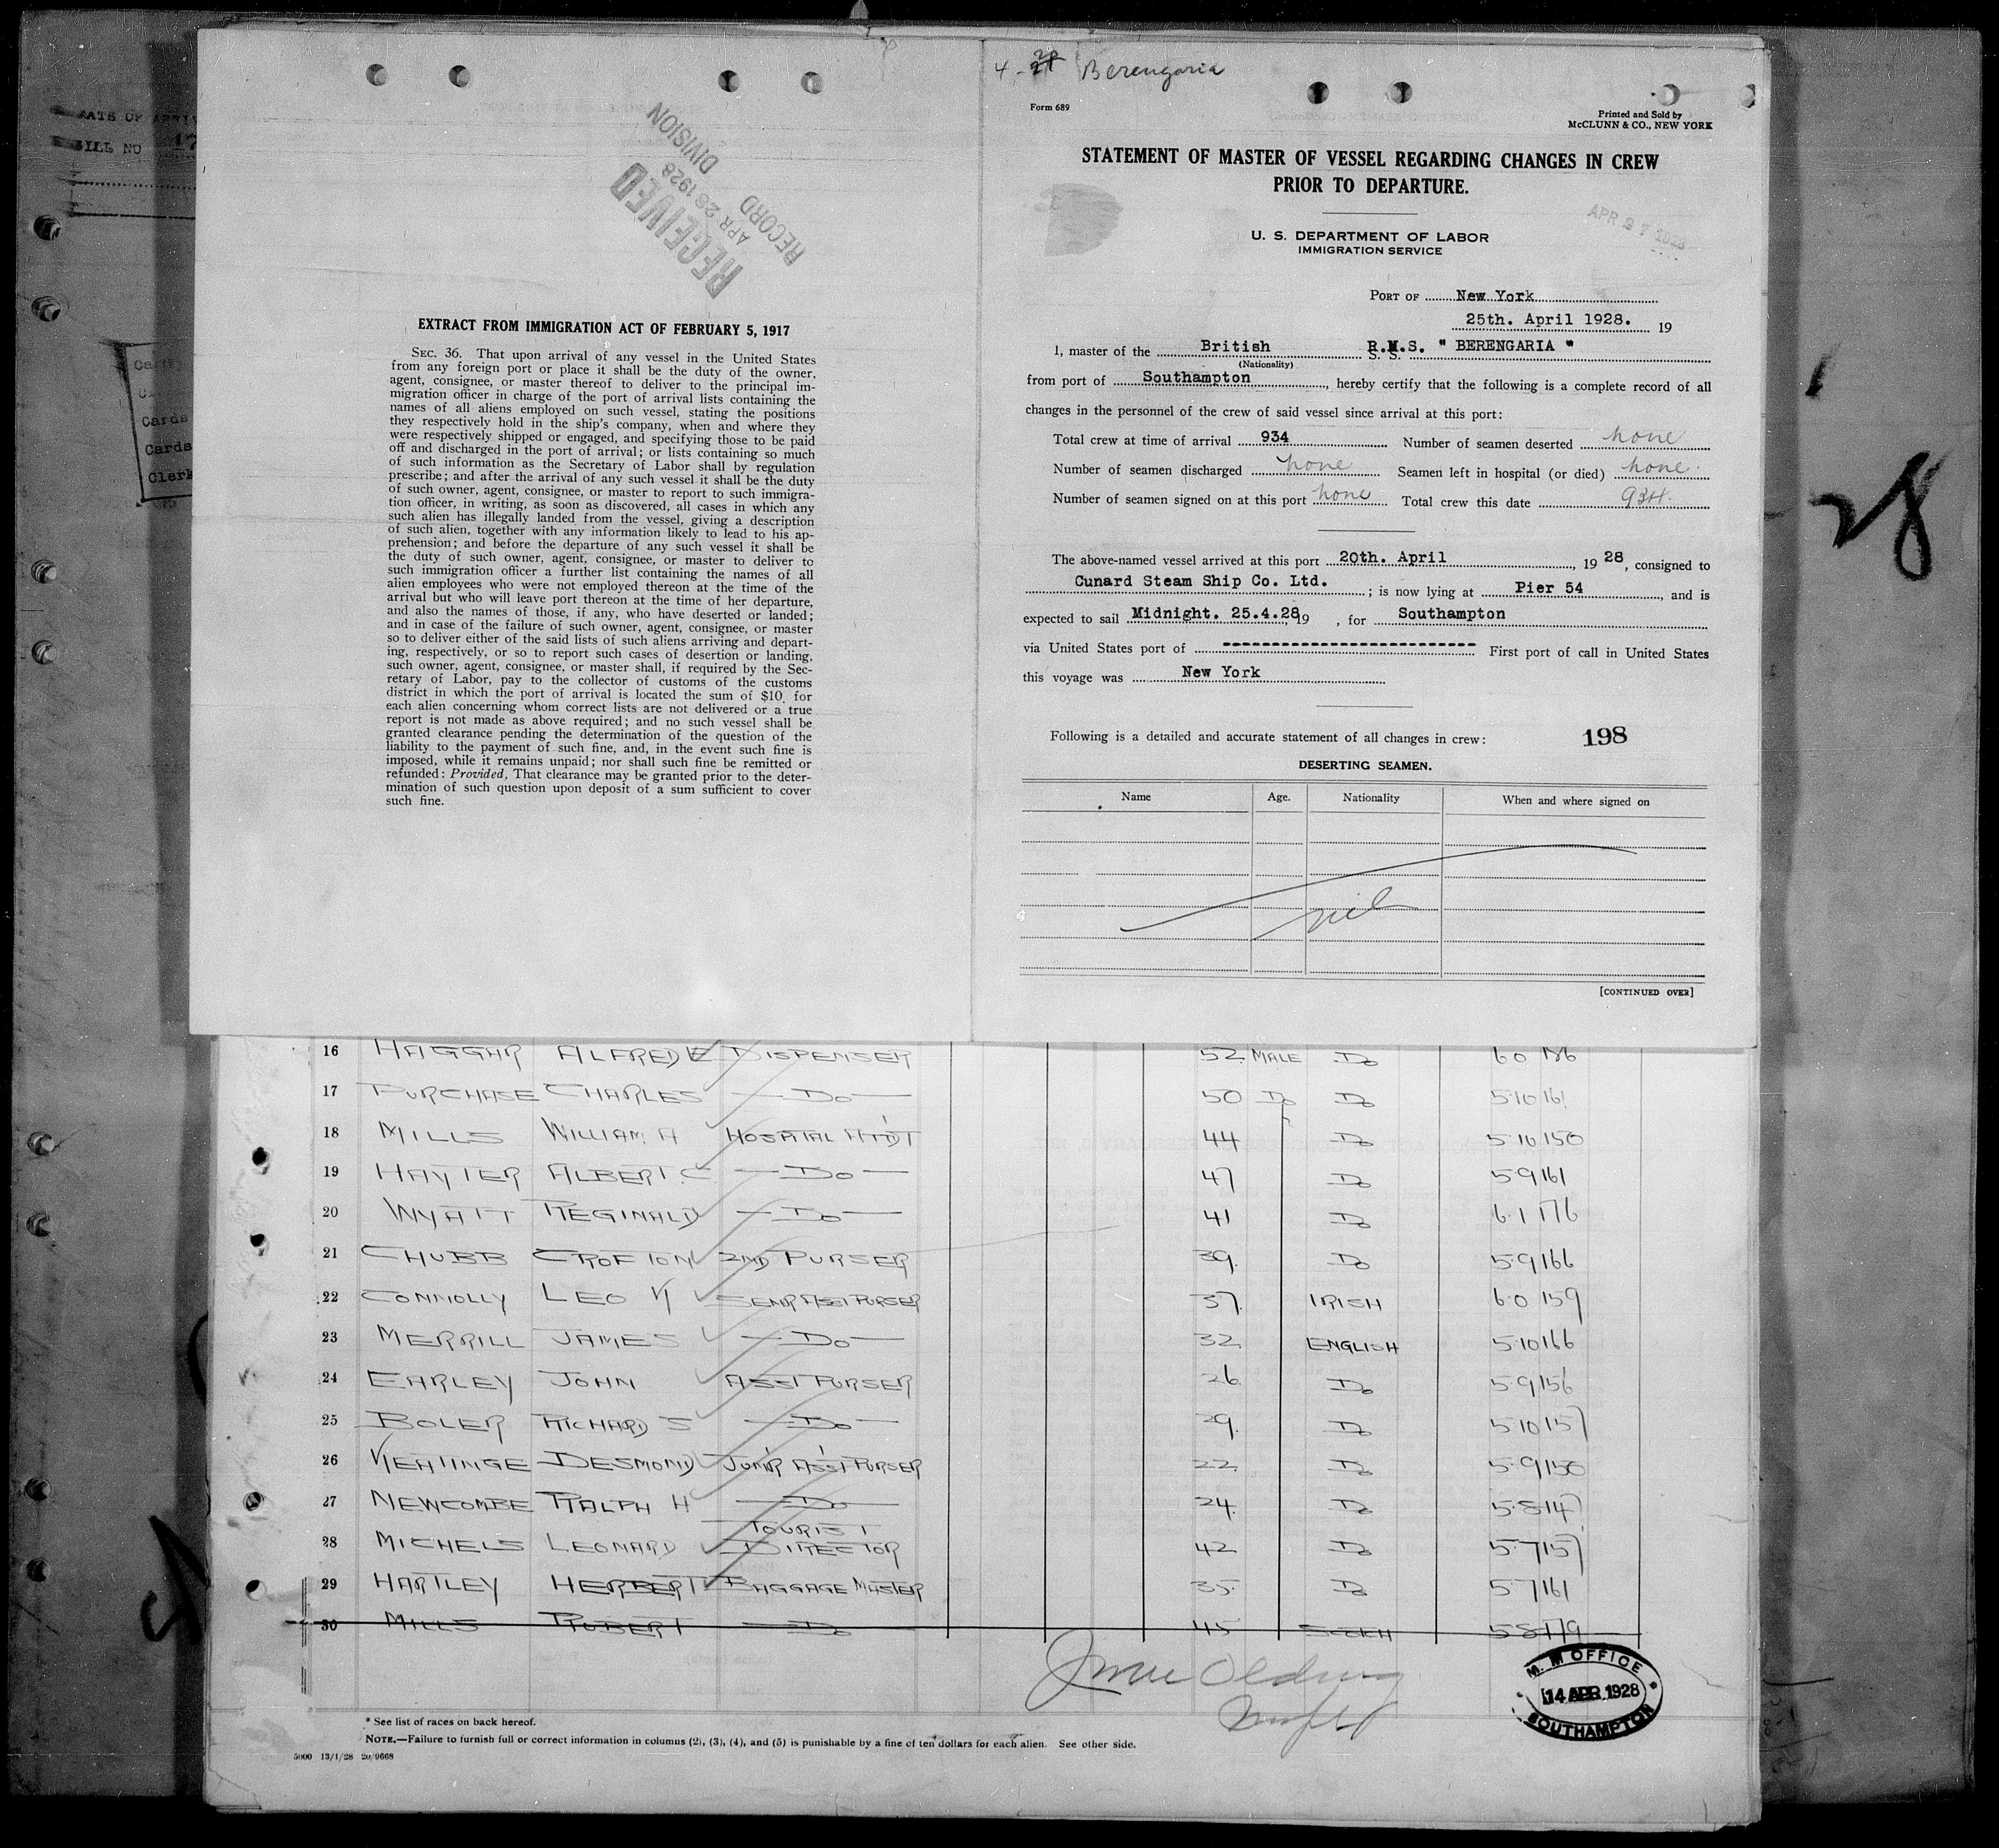 DATE OF ARRIV
BILL NO 17
Cards
Cards
Clerk
RECEIVED
APR 28 1928
RECORD
DIVISION
EXTRACT FROM IMMIGRATION ACT OF FEBRUARY 5, 1917
SEC. 36. That upon arrival of any vessel in the United States
from any foreign port or place it shall be the duty of the owner,
agent, consignee, or master thereof to deliver to the principal im-
migration officer in charge of the port of arrival lists containing the
names of all aliens employed on such vessel, stating the positions
they respectively hold in the ship's company, when and where they
were respectively shipped or engaged, and specifying those to be paid
off and discharged in the port of arrival; or lists containing so much
of such information as the Secretary of Labor shall by regulation
prescribe; and after the arrival of any such vessel it shall be the duty
of such owner, agent, consignee, or master to report to such immigra-
tion officer, in writing, as soon as discovered, all cases in which any
such alien has illegally landed from the vessel, giving a description
of such alien, together with any information likely to lead to his ap-
prehension; and before the departure of any such vessel it shall be
the duty of such owner, agent, consignee, or master to deliver to
such immigration officer a further list containing the names of all
alien employees who were not employed thereon at the time of the
arrival but who will leave port thereon at the time of her departure,
and also the names of those, if any, who have deserted or landed;
and in case of the failure of such owner, agent, consignee, or master
so to deliver either of the said lists of such aliens arriving and depart-
ing, respectively, or so to report such cases of desertion or landing,
such owner, agent, consignee, or master shall, if required by the Sec-
retary of Labor, pay to the collector of customs of the customs
district in which the port of arrival is located the sum of $10 for
each alien concerning whom correct lists are not delivered or a true
report is not made as above required; and no such vessel shall be
granted clearance pending the determination of the question of the
liability to the payment of such fine, and, in the event such fine is
imposed, while it remains unpaid; nor shall such fine be remitted or
refunded: Provided, That clearance may be granted prior to the deter-
mination of such question upon deposit of a sum sufficient to cover
such fine.
4 - 28 Berengaria
Form 689
Printed and Sold by
McCLUNN & CO., NEW YORK
STATEMENT OF MASTER OF VESSEL REGARDING CHANGES IN CREW
PRIOR TO DEPARTURE.
APR 27 1928
U. S. DEPARTMENT OF LABOR
IMMIGRATION SERVICE
PORT OF New York
25th. April 1928. 19
I, master of the British R.M.S. " BERENGARIA "
(Nationality) S. S.
from port of Southampton, hereby certify that the following is a complete record of all
changes in the personnel of the crew of said vessel since arrival at this port:
Total crew at time of arrival 934 Number of seamen deserted none
Number of seamen discharged none Seamen left in hospital (or died) none.
Number of seamen signed on at this port none Total crew this date 934.
The above-named vessel arrived at this port 20th. April, 19 28, consigned to
Cunard Steam Ship Co. Ltd.; is now lying at Pier 54, and is
expected to sail Midnight. 25.4.28 19 , for Southampton
via United States port of ---------- First port of call in United States
this voyage was New York
Following is a detailed and accurate statement of all changes in crew: 198
DESERTING SEAMEN.
Name Age. Nationality When and where signed on
nil
[CONTINUED OVER]
28
16 HAGGAR ALFRED E DISPENSER 52 MALE Do 6 0 186
17 PURCHASE CHARLES — Do — 50 Do Do 5 10 161
18 MILLS WILLIAM H HOSPITAL ATTDT 44 Do 5 10 150
19 HAYTER ALBERT C — Do — 47 Do 5 9 161
20 WYATT REGINALD — Do — 41 Do 6 1 176
21 CHUBB CROFTON 2ND PURSER 39 Do 5 9 166
22 CONNOLLY LEO V SENR ASST PURSER 37 IRISH 6 0 159
23 MERRILL JAMES — Do — 32 ENGLISH 5 10 166
24 EARLEY JOHN ASST PURSER 26 Do 5 9 156
25 BOLER RICHARD S — Do — 29 Do 5 10 157
26 KEATINGE DESMOND JUNR ASST PURSER 22 Do 5 9 150
27 NEWCOMBE RALPH H — Do — 24 Do 5 8 147
28 MICHELS LEONARD TOURIST DIRECTOR 42 Do 5 7 157
29 HARTLEY HERBERT BAGGAGE MASTER 35 Do 5 7 161
30 MILLS ROBERT Do 45 SCOTCH 5 8 179
M. M OFFICE
14 APR 1928
SOUTHAMPTON
* See list of races on back hereof.
NOTE.—Failure to furnish full or correct information in columns (2), (3), (4), and (5) is punishable by a fine of ten dollars for each alien. See other side.
5000 13/1/28 20/9668